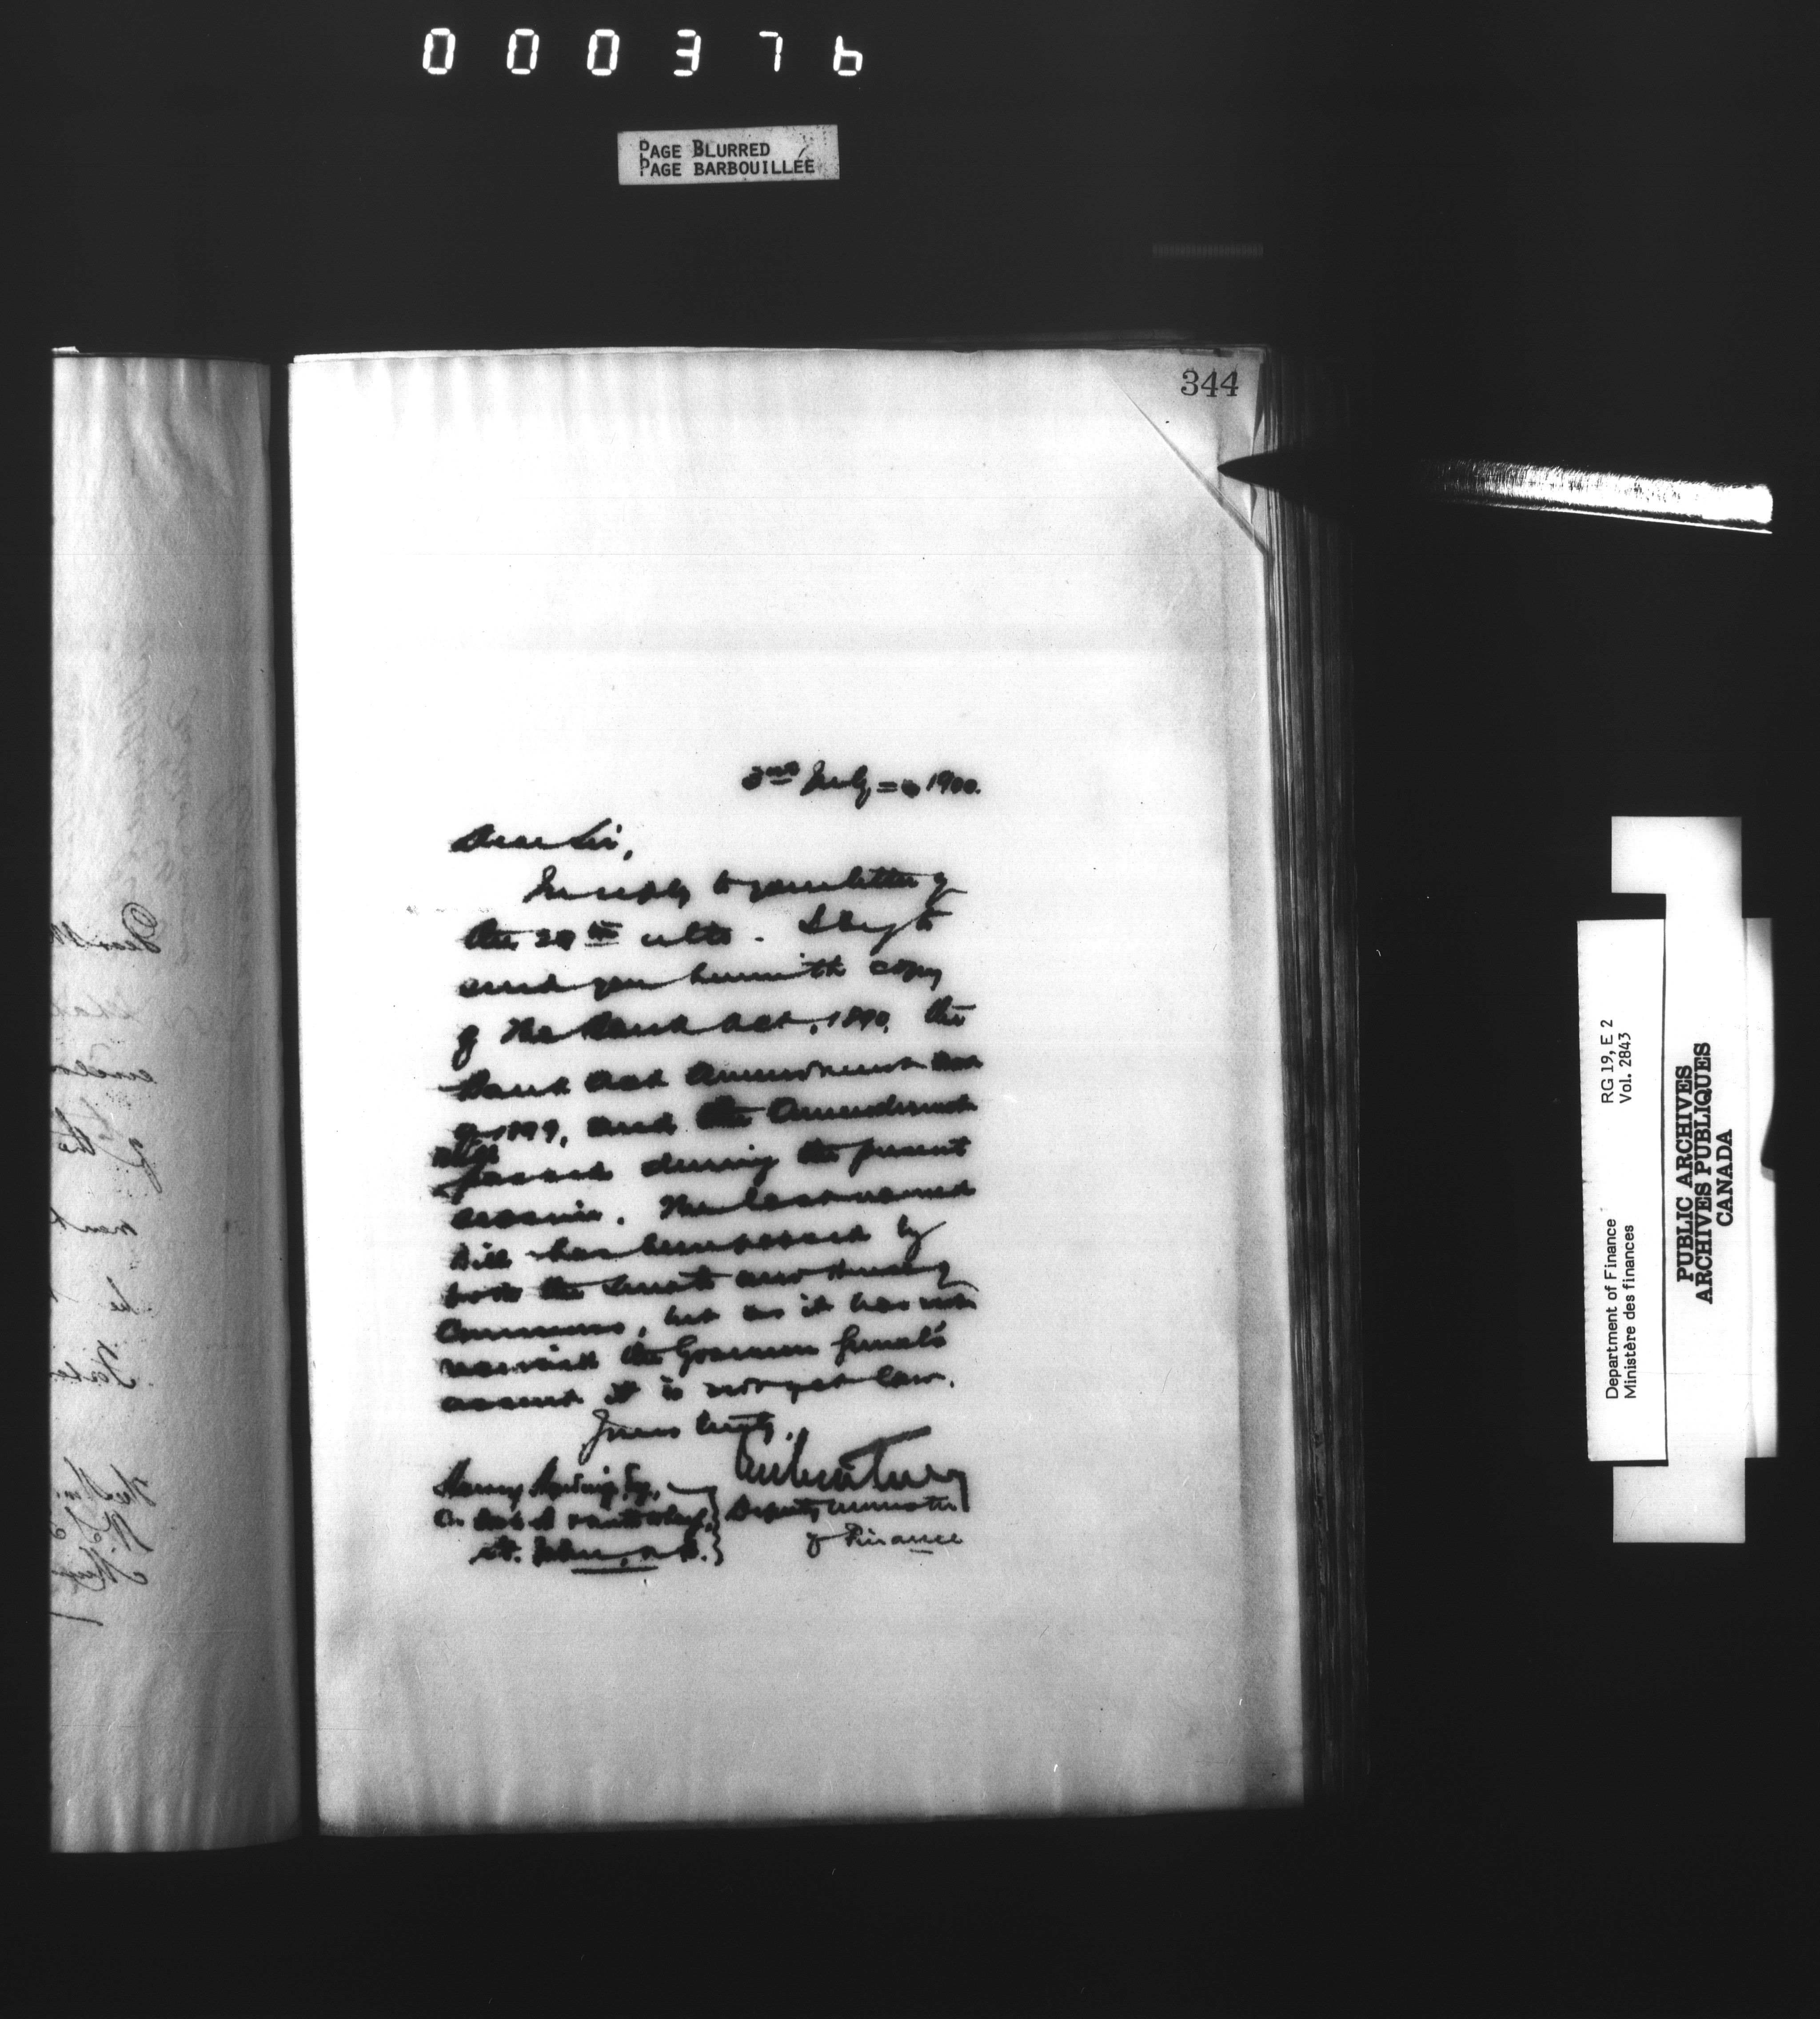 000376
PAGE BLURRED
PAGE BARBOUILLÉE
344
3rd July = 1900.
Dear Sir,
In reply to your letter of
the 29th ulto. I beg to
send you herewith copy
of The Bank Act, 1890, the
Bank Act Amendment Act
of 1899, and the Amendment
passed during the present
session. The last named
Bill has been passed by
both the Senate and House of
Commons, but as it has not
received the Governor General's
assent it is not yet law.
Yours truly,
Deputy Minister
of Finance
Esq.,
St. John, N.B.
Department of Finance RG 19, E 2
Ministère des finances Vol. 2843
PUBLIC ARCHIVES
ARCHIVES PUBLIQUES
CANADA